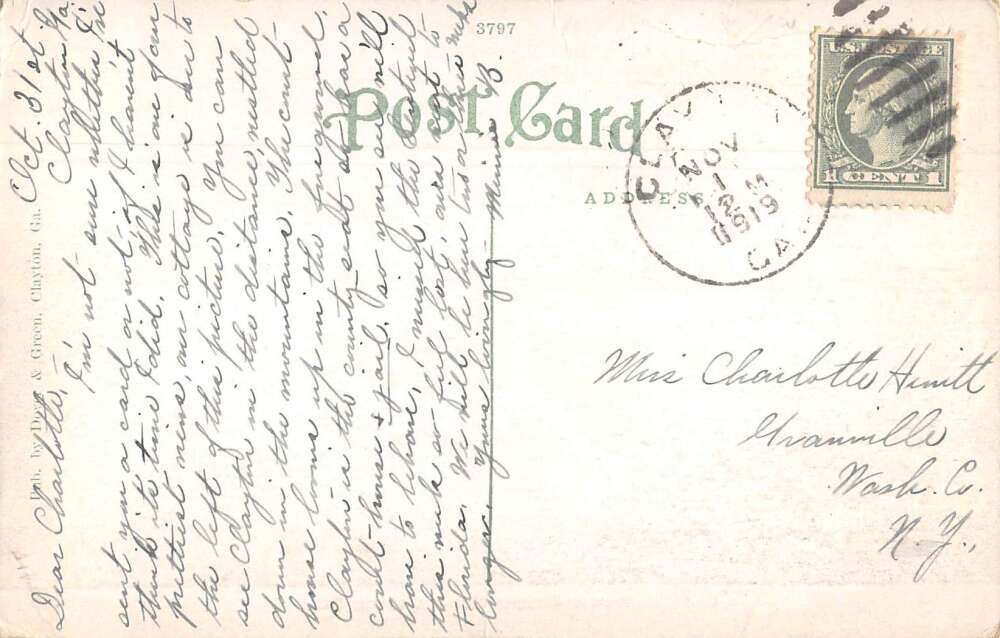 3797
Post Card
ADDRESS
U.S. POSTAGE
1 CENT 1
NOV
1
12 M
1919
GA
Pub. by Dover & Green, Clayton, Ga.
Oct. 31st
Clayton, Ga.
Dear Charlotte, –
I'm not sure whether I've
sent you a card or not, if I haven't
think it's time I did. This is one of our
prettiest views, our cottage is over to
the left of this picture. You can
see Clayton in the distance, nestled
down in the mountains. The court-
house looms up in the foreground.
Clayton is the county-seat &
court-house & jail, so you see we'll
have to behave. I mused the
this week so full lost, are not to
Florida. We will be here two or three weeks
longer. Yours lovingly Minnie B.
Miss Charlotte Hewitt
Granville
Wash. Co.
N. Y.,